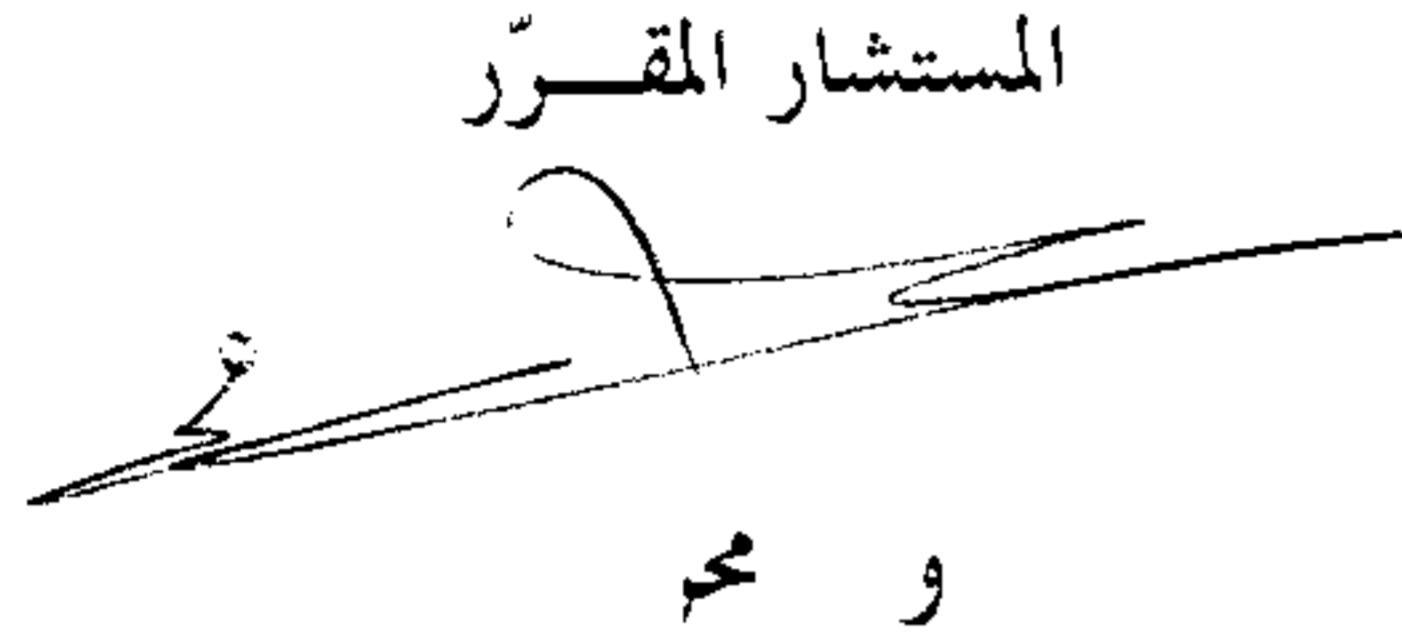 المستشار المقـــرّر
و محر